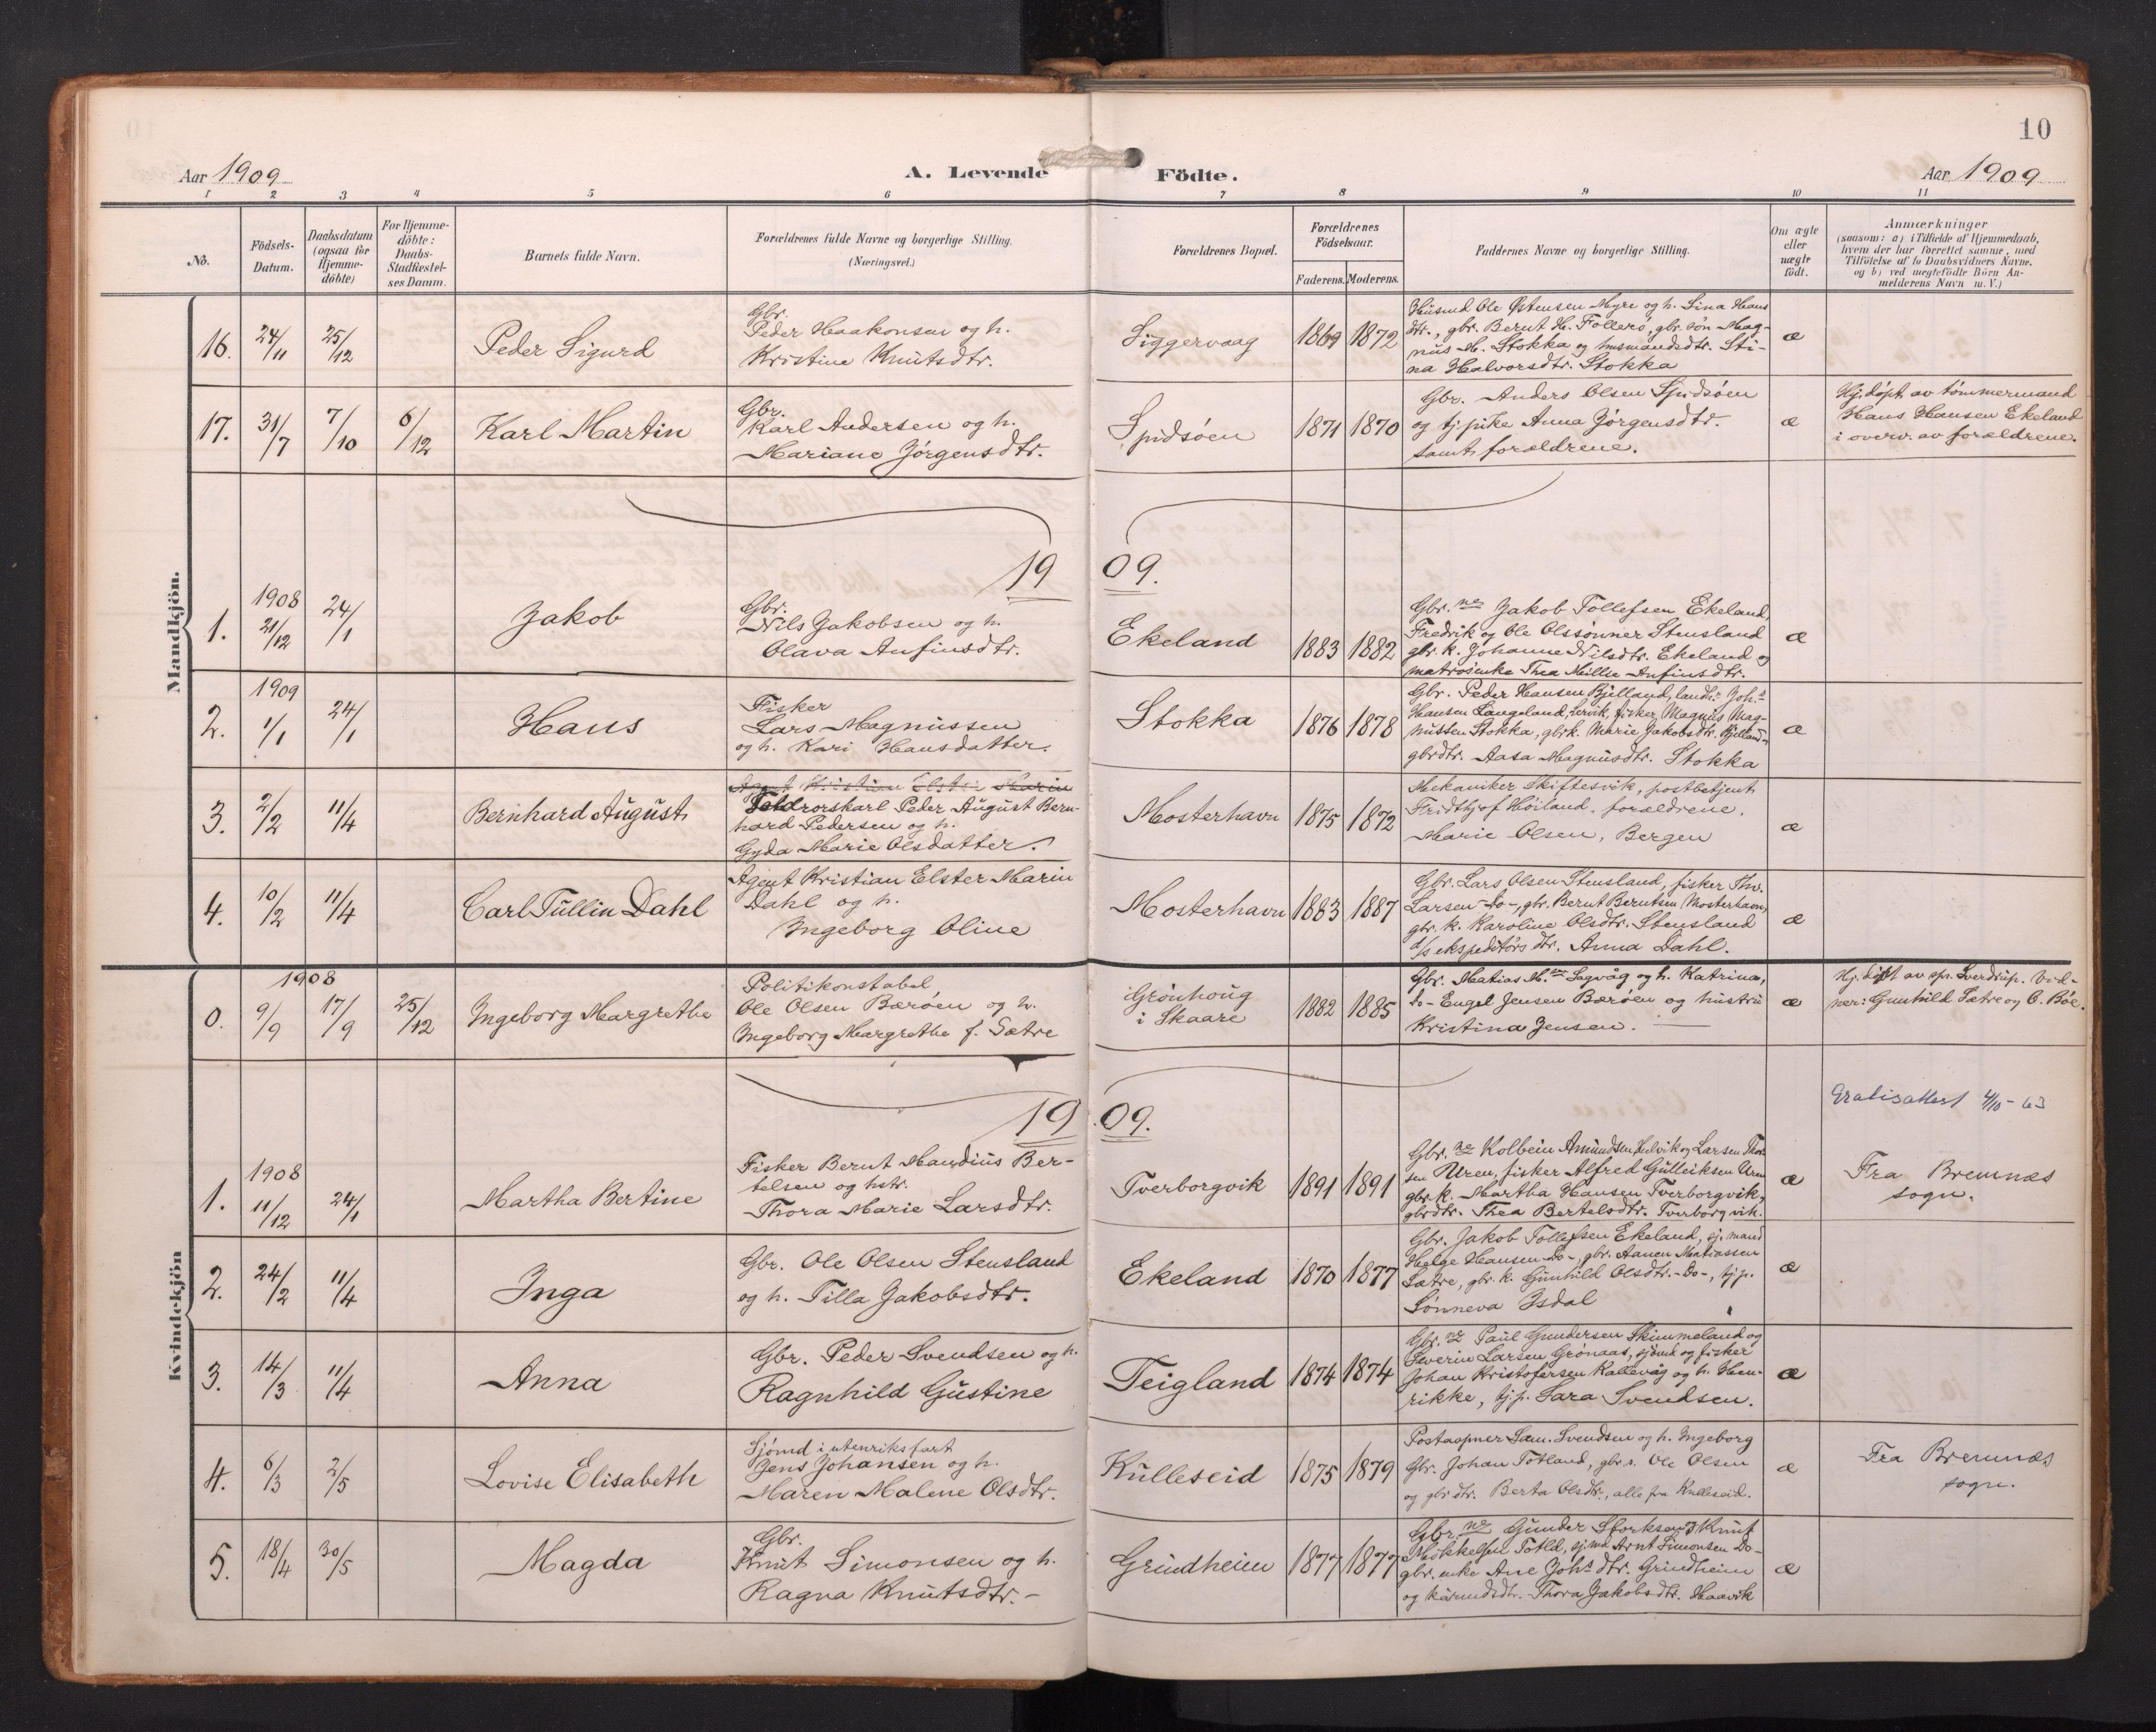 10
Aar 1909
A. Levende Födte.
Aar 1909
1 2 3 4 5 6 7 8 9 10 11
No.
Födsels-Datum.
Daabsdatum (ogsaa for Hjemme-döbte)
For Hjemme-döbte: Daabs-Stadfæstel-ses Datum.
Barnets fulde Navn.
Forældrenes fulde Navne og borgerlige Stilling.
(Næringsvei.)
Forældrenes Bopæl.
Forældrenes Födselsaar.
Faderens. Moderens.
Faddernes Navne og borgerlige Stilling.
Om ægte eller uægte födt.
Anmærkninger
(saasom: a) i Tilfælde af Hjemmedaab,
hvem der har forrettet samme, med
Tilföielse af to Daabsvidners Navne,
og b) ved uegtefödte Börn An-
melderens Navn m. V.)
Mandkjön.
16. 24/11 25/12 Peder Sigurd
Gbr.
Peder Haakonsen og h.
Kristine Knutsdtr.
Siggervaag 1869 1872
Husmd Ole Østensen Myre og h. Sina Hans
dtr., gbr. Bernt H. Follerö, gbr. sön Mag-
nus M. Stokka og husmandsdtr. Sti-
na Halvorsdtr. Stokka
æ
17. 31/7 7/10 6/12 Karl Martin
Gbr.
Karl Andersen og h.
Mariane Jörgensdtr.
Spidsöen 1871 1870
Gbr. Anders Olsen Spidsöen
og tj.pike Anna Jörgensdtr.
samt forældrene.
æ
Hj.döpt av tömmermand
Hans Hansen Ekeland
i overv. av forældrene.
1909.
1. 1908 21/12 24/1 Jakob
Gbr.
Nils Jakobsen og h.
Olava Anfinsdtr.
Ekeland 1883 1882
Gbr.ne Jakob Tollefsen Ekeland,
Fredrik og Ole Olssönner Stensland
gbr. k. Johanne Nilsdtr. Ekeland og
matrosenke Thea Millie Anfinsdtr.
æ
2. 1909 1/1 24/1 Hans
Fisker
Lars Magnussen
og h. Kari Hansdatter.
Stokka 1876 1878
Gbr. Peder Hansen Bjelland, landh. Joh.s
Hansen Langeland, Lervik, fisker Magnus Mag-
nussen Stokka, gbrk. Marie Jakobsdtr. Bjelland
gbrdtr. Aasa Magnusdtr. Stokka
æ
3. 2/2 11/4 Bernhard August
Agent Kristian Elster Marin
Peder August Bern-
hard Pedersen og h.
Gyda Marie Olsdatter.
Mosterhavn 1875 1872
Mekaniker Skiftesvik, postbetjent
Fridthjof Höiland, forældrene,
Marie Olsen, Bergen
æ
4. 10/2 11/4 Carl Tullin Dahl
Agent Kristian Elster Marin
Dahl og h.
Ingeborg Oline
Mosterhavn 1883 1887
Gbr. Lars Olsen Stensland, fisker Thv.
Larsen -do-, gbr. Bernt Berntsen Mosterhavn,
gbr. k. Karoline Olsdtr. Stensland
d/s ekspeditörs dtr. Anna Dahl.
æ
Kvindekjön
0. 1908 9/9 17/9 25/12 Ingeborg Margrethe
Politikonstabel
Ole Olsen Bæröen og h.
Ingeborg Margrethe f. Sætre
Grönhoug
i Skaare
1882 1885
Gbr. Matias M. Sagvåg og h. Katrina,
do- Engel Jensen Bæröen og hustru
Kristina Jensen.
æ
Hj.döpt av spr. Sverdrup. Vid-
ner: Gunhild Sætre og O. Böe.
1909.
Gratisattest 4/10-63
1. 1908 11/12 24/1 Martha Bertine
Fisker Bernt Mandius Ber-
telsen og hstr.
Thora Marie Larsdtr.
Tverborgvik 1891 1891
Gbr.ne Kolbein Amundsen Helvik og Larsen Thor
sen Uren, fisker Alfred Gulleiksen Uren
gbr. k. Martha Hansen Tverborgvik,
gbrdtr. Thea Bertelsdtr. Tverborgvik.
æ
Fra Bremnæs
sogn.
2. 24/2 11/4 Inga
Gbr. Ole Olsen Stensland
og h. Tilla Jakobsdtr.
Ekeland 1870 1877
Gbr. Jakob Tollefsen Ekeland, sj. mand
Helge Hansen -do-, gbr. Aanen Matiassen
Sætre, gbr. k. Gunhild Olsdtr. -do-, tj.p.
Sönneva Isdal
æ
3. 14/3 11/4 Anna
Gbr. Peder Svendsen og h.
Ragnhild Gustine
Teigland 1874 1874
Gbr.ne Paul Gundersen Skimmeland og
Severin Larsen Grönaas, sjömd og fisker
Johan Kristofersen Kallevåg og h. Hen-
rikke, tj.p. Sara Svendsen.
æ
4. 6/3 2/5 Lovise Elisabeth
Sjömd i utenriksfart
Jens Johansen og h.
Maren Malene Olsdtr.
Kulleseid 1875 1879
Postaapner Sam. Svendsen og h. Ingeborg
Gbr. Johan Totland, gbr s. Ole Olsen
og gbr dtr. Berta Olsdtr., alle fra Kulleseid.
æ
Fra Bremnæs
sogn.
5. 18/4 30/5 Magda
Gbr.
Knut Simonsen og h.
Ragna Knutsdtr.-
Grindheim 1877 1877
Gbr.ne Gunder Storksen og Knut
Mökkelsen Totld, sj.md Arnt Simonsen -do-
gbr. enke Ane Joh.s dtr. Grindheim
og Thora Jakobsdtr. Haavik
æ